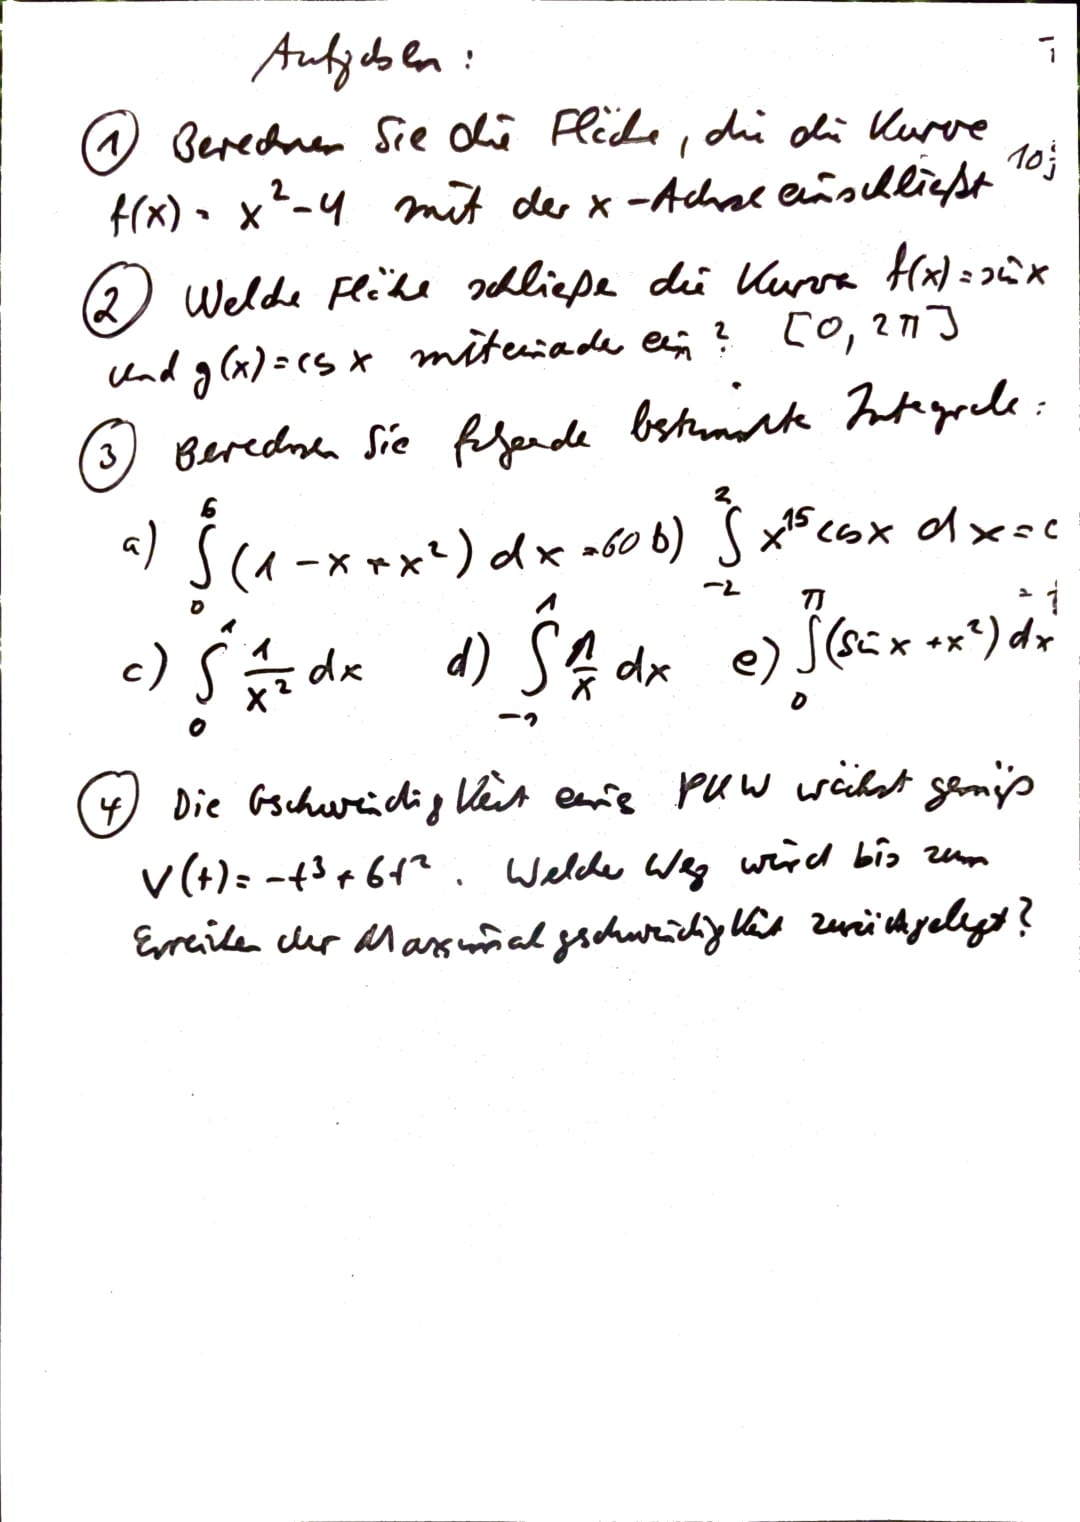 Aufgaben:
① Berechnen Sie die Fläche, die die Kurve
f(x) = x²-4 mit der x-Achse einschließt
② Welche Fläche schließen die Kurven f(x)=sin x
und g(x)=cos x miteinander ein? [0, 2π]
③ Berechnen Sie folgende bestimmte Integrale:
a) ∫₀⁶ (1-x+x²) dx =60 b) ∫₋₂² x¹⁵ cos x dx =
c) ∫₀¹ 1/x² dx d) ∫¹ 1/x dx e) ∫₀^π (sin x + x²) dx
④ Die Geschwindigkeit eines PKW wächst gemäß
v(t) = -t³+6t². Welcher Weg wird bis zum
Erreichen der Maximalgeschwindigkeit zurückgelegt?